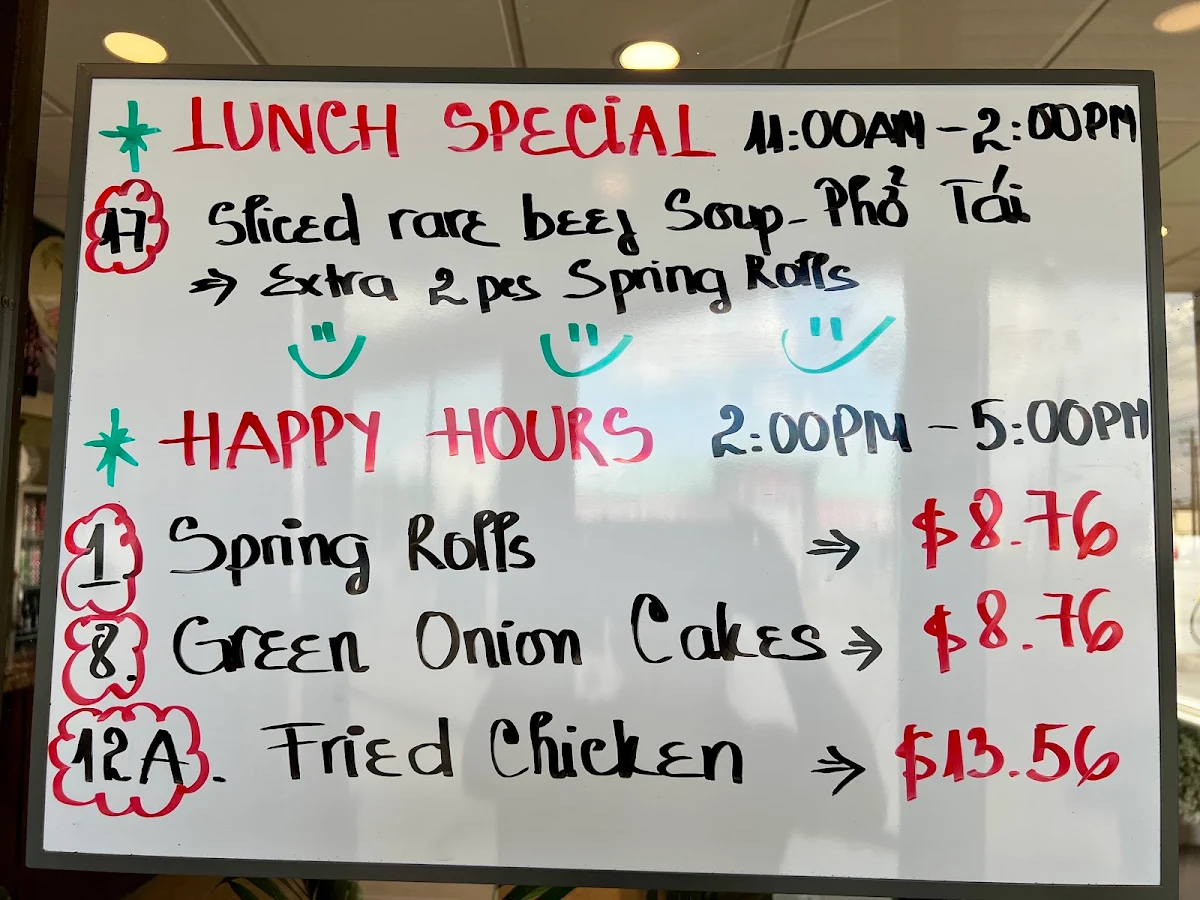 * LUNCH SPECIAL 11:00AM - 2:00PM
17 Sliced rare beef Soup - Phở Tái
⇒ Extra 2 pcs Spring Rolls
* HAPPY HOURS 2:00PM - 5:00PM
1 Spring Rolls ⇒ $8.76
8. Green Onion Cakes ⇒ $8.76
12A. Fried Chicken ⇒ $13.56